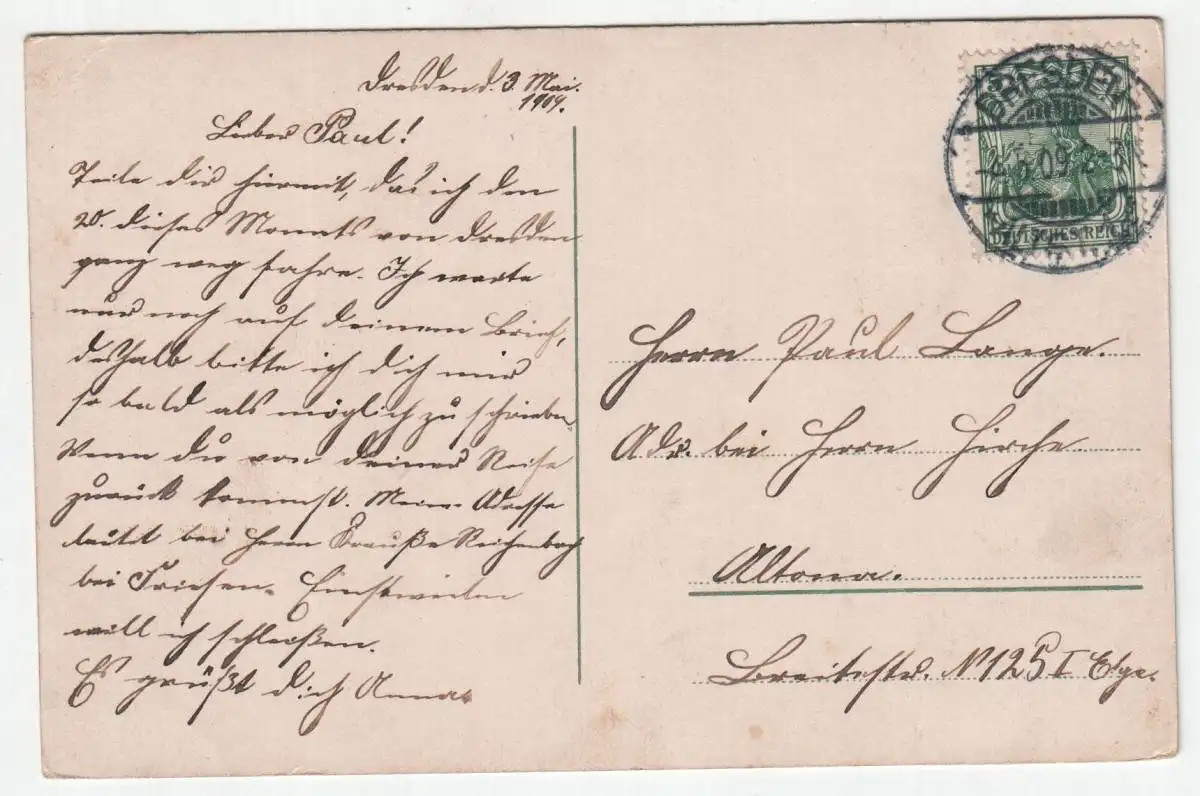 Dresden d. 3. Mai.
1909.
Lieber Paul!
Teile dir hiermit, das ich den
20. dieses Monats von Dresden
ganz weg fahre. Ich warte
nur noch auf deinem Brief,
deshalb bitte ich dich mir
so bald als möglich zu schrieben
Wenn du von deiner Reise
zurück kommst. Meine Adresse
lautet bei Herrn Krauße Reichenbach
bei Friesen. Einstweilen
will ich schließen.
Es grüßt dich Anna.
DRESDEN
5.09
DEUTSCHES REICH
Herrn Paul Lange.
Adr. bei Herrn Hirche
Altona.
Breitestr. N 125 I Etge.